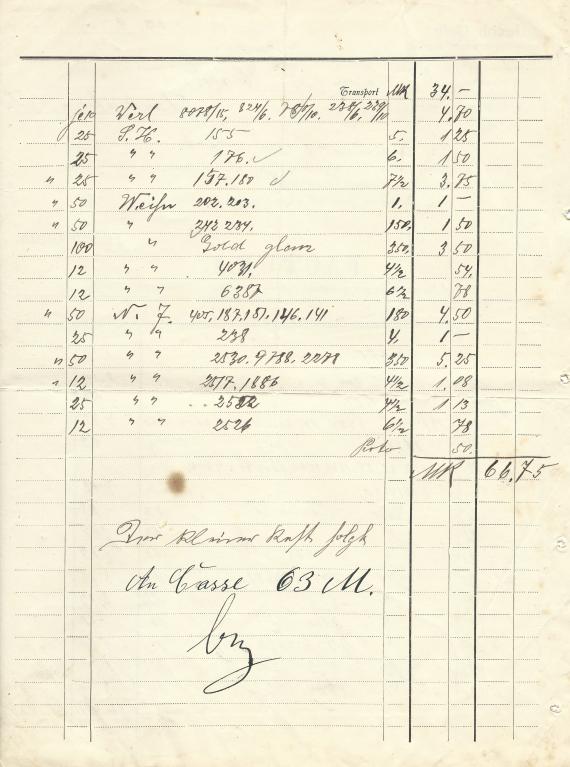 Transport MK 34.–
je 10 Verl 8078/15, 824/6. 4.70
25 P. H. 155 5. 1 25
25 " " 176. 6. 1 50
" 25 " " 157.180 7½ 3.75
" 50 Weihn 202. 203. 1. 1 –
" 50 " 242 234. 150. 1 50
100 " Gold glanz 350. 3 50
12 " " 4031. 4½ 54.
12 " " 6387 6½ 78
" 50 N. J. 405. 187. 151. 146. 141 180 4.50
25 " " 238 4. 1 –
" 50 " " 2530. 9788. 2278 350 5.25
" 12 " " 2517. 1886 4½ 1.08
25 " " 2522 4½ 1 13
12 " " 2526 6½ 78
Porto 50.
MK 66.75
Der kleine Rest folgt
An Casse 63 M.